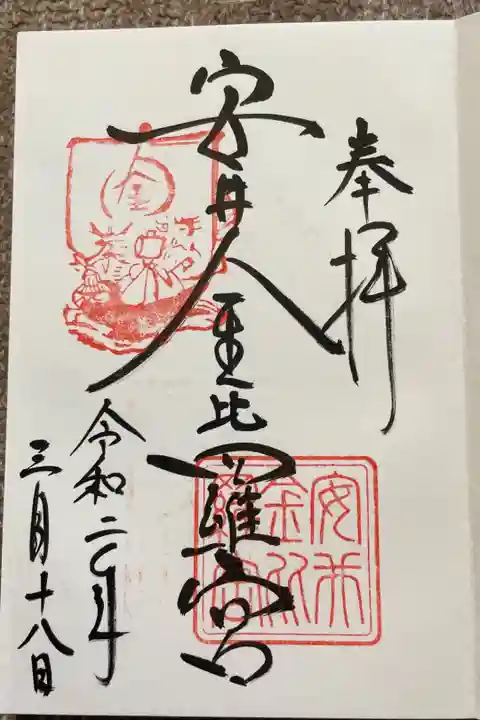 奉拝
安井金比羅宮
令和二年
三月十八日
安井
金比
羅宮
金